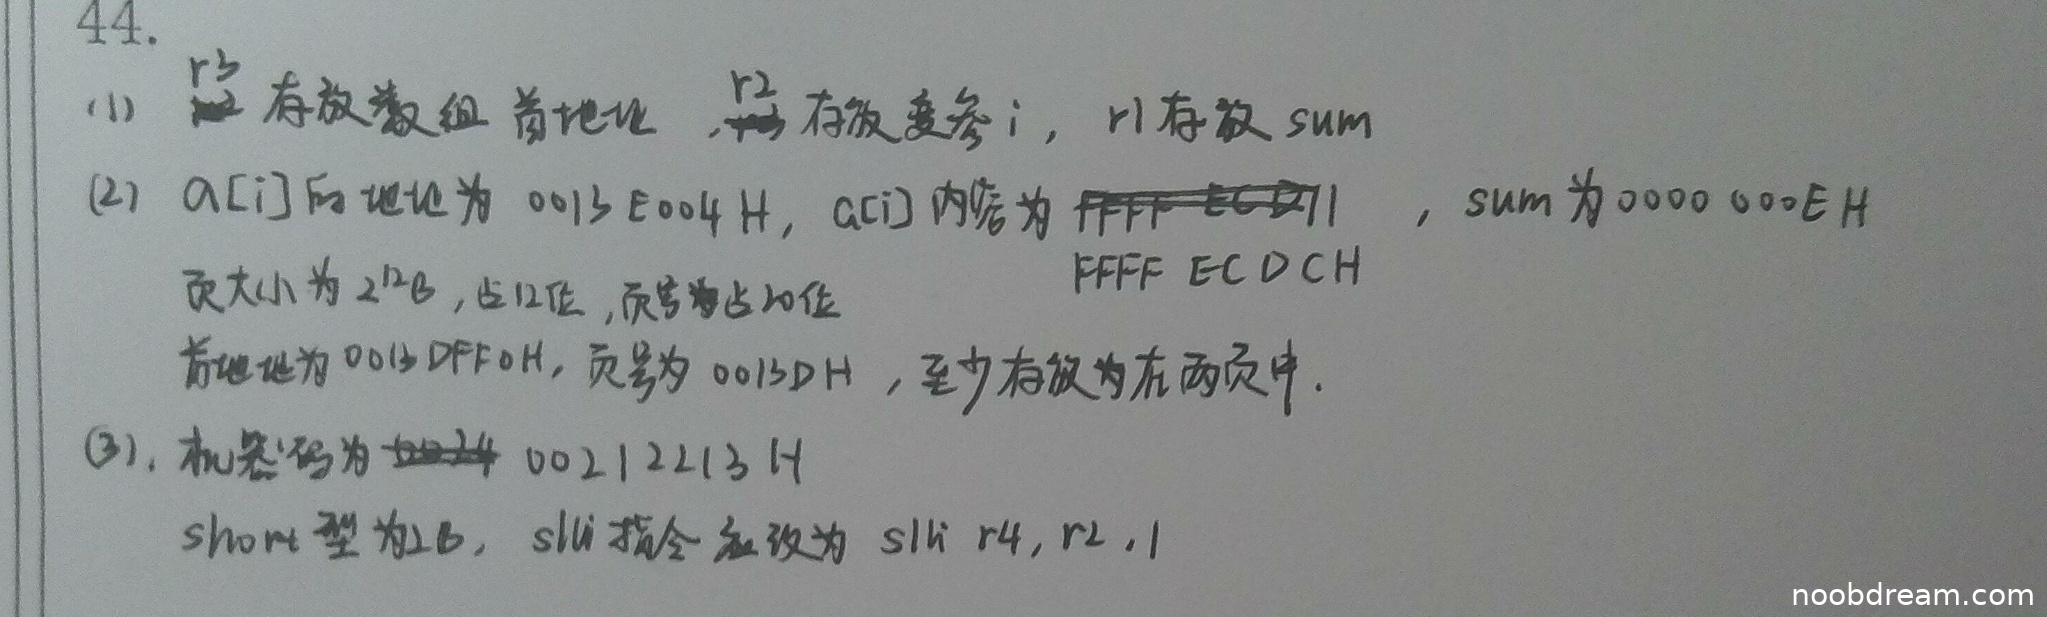 44.
(1) r3 存放数组首地址, r2 存放变参i, r1存放 sum
(2) a[i]的地址为 0013E004H, a[i]内容为 FFFF ECDCH, sum为0000 000EH
页大小为2¹²B, 占12位, 页号占20位
首地址为0013DFF0H, 页号为 0013DH, 至少存放为在两页中.
(3). 机器码为 00212213H
short型为2B, slli指令应改为 slli r4, r2, 1
noobdream.com